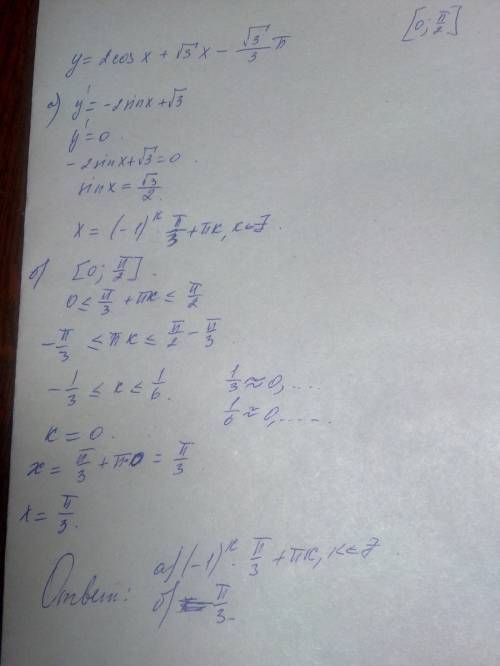 y = 2cos x + √3 x − √3/3 π [0; π/2]
а) y' = −2sinx + √3
y' = 0
−2sinx + √3 = 0
sinx = √3/2
x = (−1)^k · π/3 + πk, k ∈ Z
б) [0; π/2]
0 ≤ π/3 + πk ≤ π/2
−π/3 ≤ πk ≤ π/2 − π/3
−1/3 ≤ k ≤ 1/6 1/3 ≈ 0,....
1/6 ≈ 0,.....
k = 0.
x = π/3 + π·0 = π/3
x = π/3.
Ответ: а) (−1)^k · π/3 + πk, k ∈ Z.
б) π/3